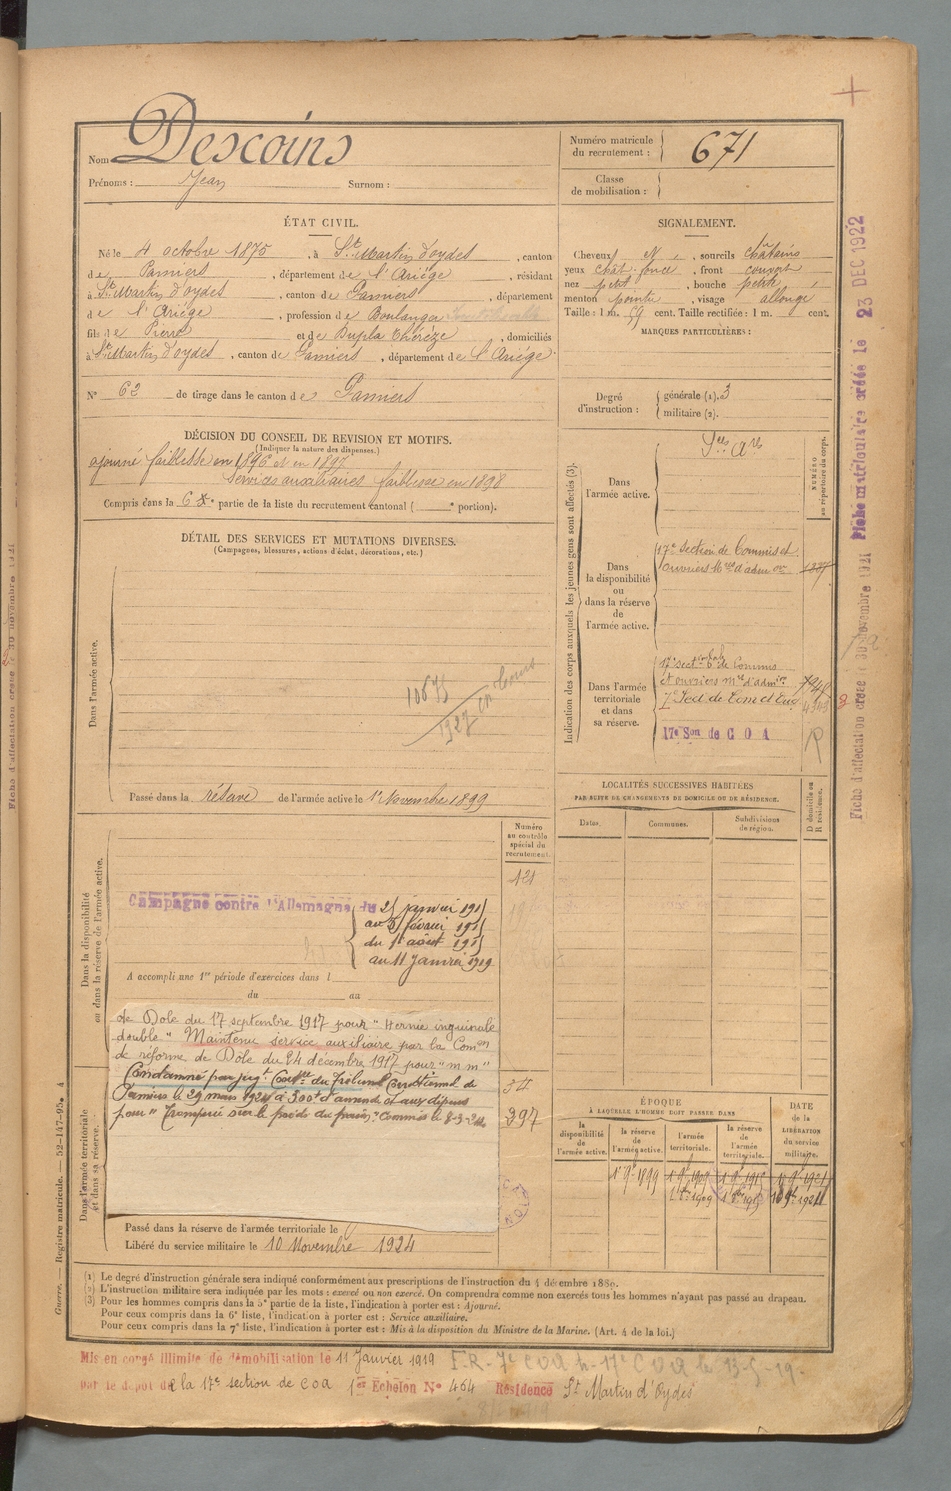 Nom Descoins
Prénoms : Jean Surnom :
Numéro matricule du recrutement : 671
Classe de mobilisation :
ÉTAT CIVIL.
Né le 4 octobre 1875, à St Martin d'oydes, canton
de Pamiers, département de l'Ariége, résidant
à St Martin d'oydes, canton de Pamiers, département
de l'Ariége, profession de Boulanger
fils de Pierre et de Dupla Thérèze, domiciliés
à St Martin d'oydes, canton de Pamiers, département de l'Ariége.
N° 62 de tirage dans le canton de Pamiers
SIGNALEMENT.
Cheveux N, sourcils châtains
yeux chat. foncé, front couvert
nez petit, bouche petite,
menton pointu, visage allongé
Taille : 1 m. 59 cent. Taille rectifiée : 1 m. cent.
MARQUES PARTICULIÈRES :
Degré d'instruction : générale (1). 3
militaire (2).
DÉCISION DU CONSEIL DE REVISION ET MOTIFS.
(Indiquer la nature des dispenses.)
ajourné faiblesse en 1896 et en 1897
Services auxiliaires faiblesse en 1898
Compris dans la 6e partie de la liste du recrutement cantonal ( portion).
DÉTAIL DES SERVICES ET MUTATIONS DIVERSES.
(Campagnes, blessures, actions d'éclat, décorations, etc.)
Dans l'armée active.
Passé dans la réserve de l'armée active le 1er Novembre 1899
Indication des corps auxquels les jeunes gens sont affectés (3).
NUMÉRO au répertoire du corps.
Dans l'armée active.
Sces Ares
Dans la disponibilité ou dans la réserve de l'armée active.
17e Section de Commis et
ouvriers Mres d'adm on
Dans l'armée territoriale et dans sa réserve.
17e Son de C O A
R
LOCALITÉS SUCCESSIVES HABITÉES
PAR SUITE DE CHANGEMENTS DE DOMICILE OU DE RÉSIDENCE.
Dates. Communes. Subdivisions de région.
D domicile ou R résidence.
Dans la disponibilité ou dans la réserve de l'armée active.
Numéro au contrôle spécial du recrutement.
121
Campagne contre l'Allemagne du
au 11 Janvier 1919
A accompli une 1re période d'exercices dans l
du au
de Dole du 17 septembre 1917 pour "Hernie inguinale
double" Maintenu service auxiliaire par la Comon
de réforme de Dôle du 24 décembre 1917 pour "mm"
Condamné par jugt Contre du Tribunal Correctionnel de
Pamiers le 29 mars 1924 à 300f d'amende et aux dépens
pour "Tromperie sur le poids du pain". Commis le 8-3-24
34
397
Dans l'armée territoriale et dans sa réserve.
Passé dans la réserve de l'armée territoriale le
Libéré du service militaire le 10 Novembre 1924
ÉPOQUE
À LAQUELLE L'HOMME DOIT PASSER DANS
la disponibilité de l'armée active.
la réserve de l'armée active.
l'armée territoriale.
la réserve de l'armée territoriale.
DATE de la LIBÉRATION du service militaire.
(1) Le degré d'instruction générale sera indiqué conformément aux prescriptions de l'instruction du 4 décembre 1889.
(2) L'instruction militaire sera indiquée par les mots : exercé ou non exercé. On comprendra comme non exercés tous les hommes n'ayant pas passé au drapeau.
(3) Pour les hommes compris dans la 5e partie de la liste, l'indication à porter est : Ajourné.
Pour ceux compris dans la 6e liste, l'indication à porter est : Service auxiliaire.
Pour ceux compris dans la 7e liste, l'indication à porter est : Mis à la disposition du Ministre de la Marine. (Art. 4 de la loi.)
Mis en congé illimité de démobilisation le 11 Janvier 1919
par le dépôt de la 17e section de COA 1er Échelon N° 464 Résidence St Martin d'Oydes
Guerre. — Registre matricule. — 52-147-95.
Fiche matriculaire créée le 23 DEC 1922
Fiche d'affectation créée le 30 novembre 1921
Fiche d'affectation créée le 30 novembre 1921